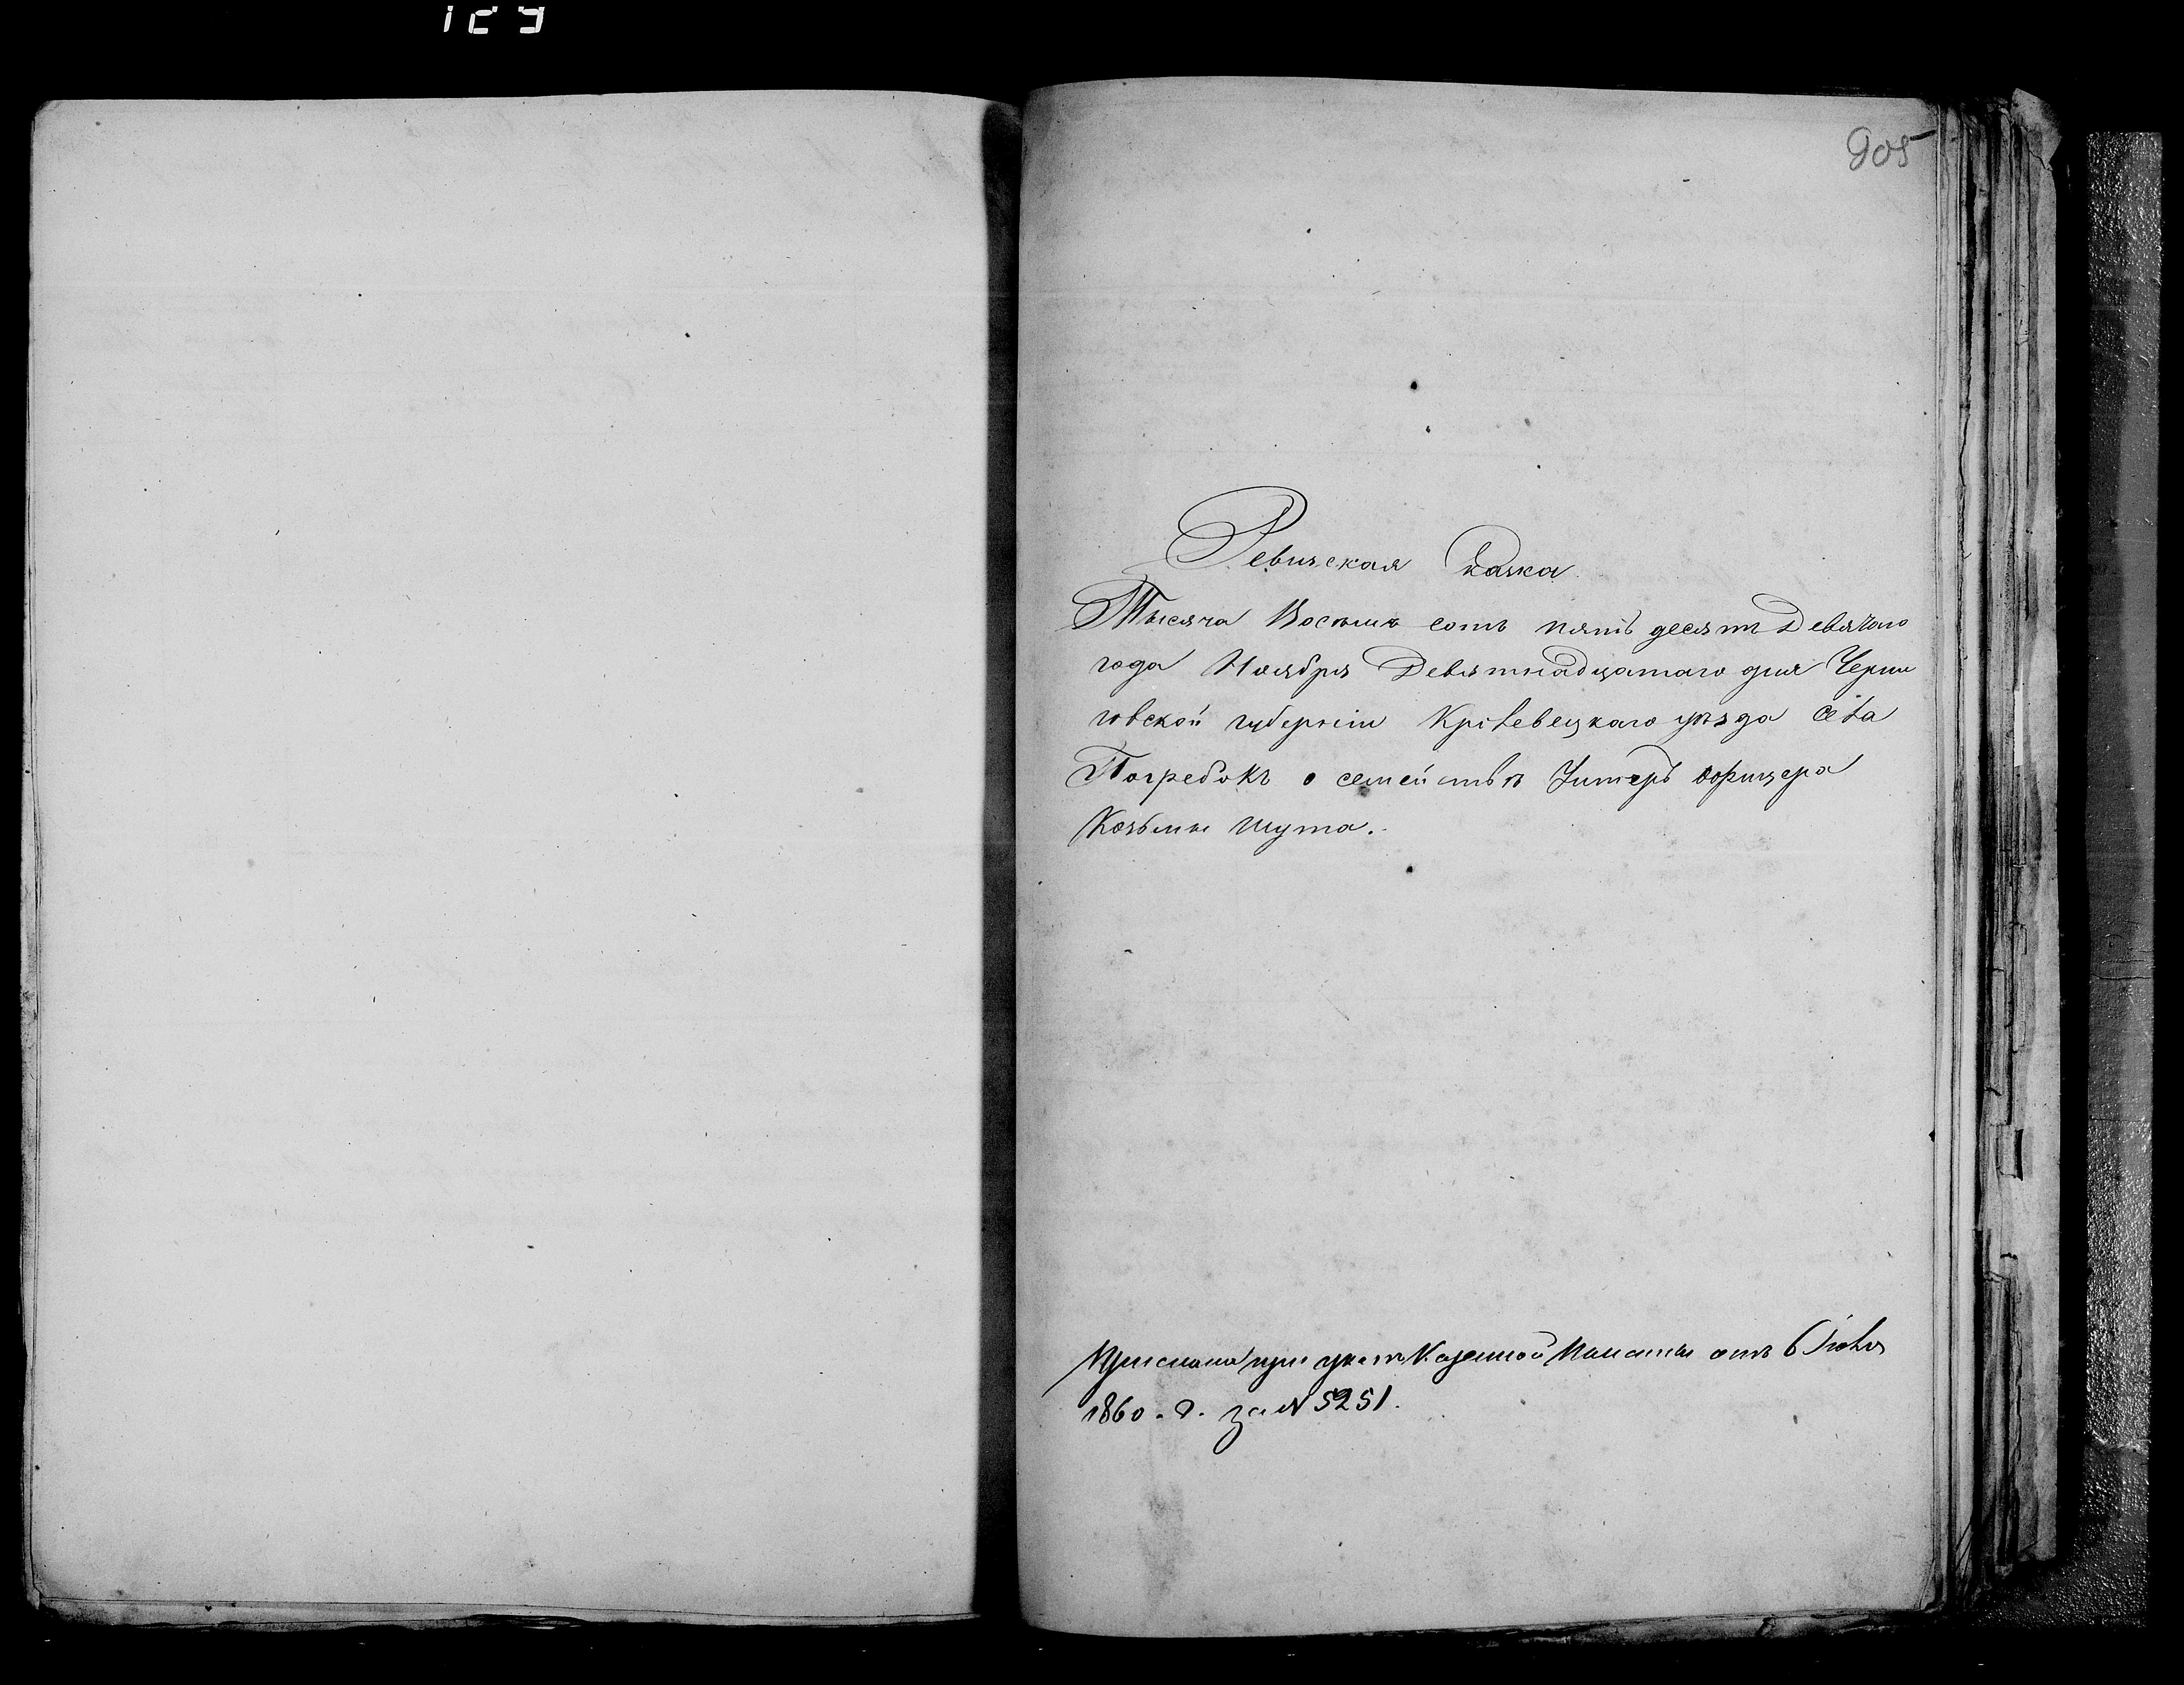 123
905
Ревизская Сказка
Тысяча Восемь сотъ пять десятъ Девятаго
года Ноября Девятнадцатаго дня Черни
говской губерніи Кролевецкаго уѣзда Села
Погребокъ о семействѣ Унтеръ офицера
Козьмы Шута.
Прислана при указѣ Казенной Палаты отъ 6 Іюля
1860. г. за № 5251.